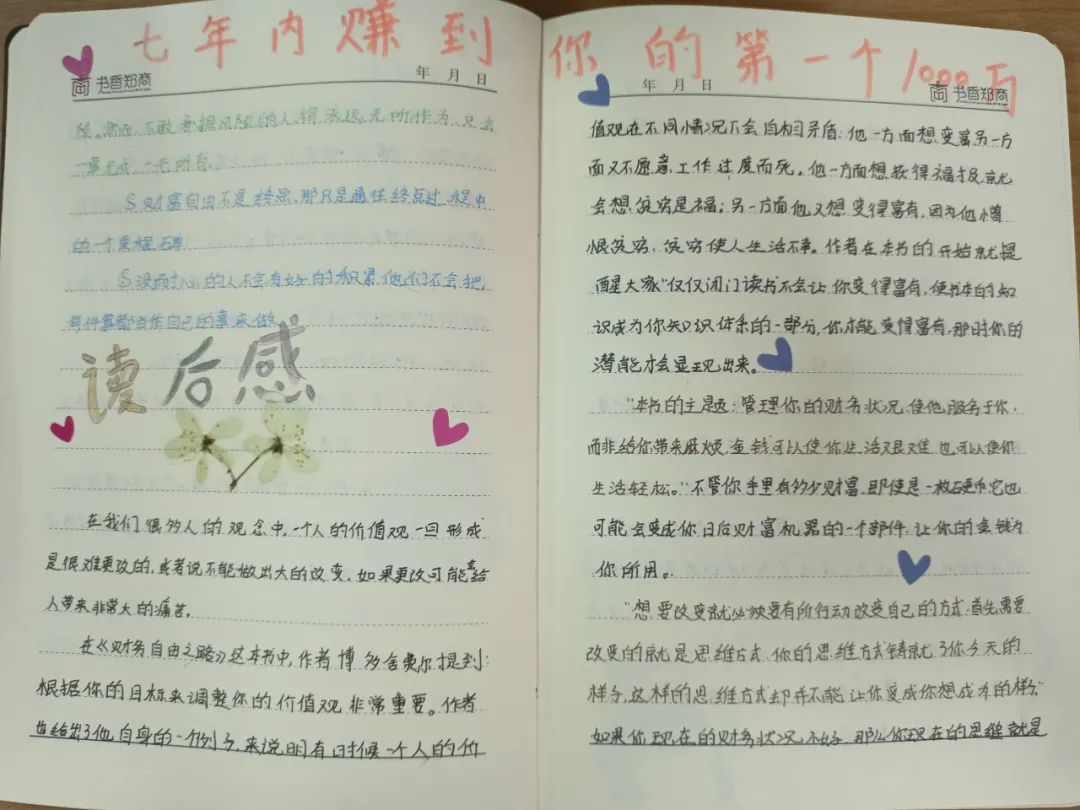 七年内赚到
书香郑商
年 月 日
险。然而,不敢承担风险的人,将永远无所作为,只会
一事无成,一无所有。
S 财富自由不是终点,那只是通往终点过程中
的一个里程碑
S 没耐心的人不会有好的积累,他们不会把
每件事都当作自己的事来做
读后感
在我们很多人的观念中,一个人的价值观一旦形成
是很难更改的,或者说不能做出大的改变,如果更改可能会给
人带来非常大的痛苦。
在《财务自由之路》这本书中,作者博多·舍费尔提到:
根据你的目标来调整你的价值观非常重要。作者
也给出了他自身的一个例子,来说明有时候一个人的价
你的第一个1000万
年 月 日
书香郑商
值观在不同情况下会自相矛盾:他一方面想变富另一方
面又不愿意工作过度而死。他一方面想获得福报,就
会想贫穷是福;另一方面他又想变得富有,因为他憎
恨贫穷,贫穷使人生活不幸。作者在本书的开始就提
醒大家"仅仅闭门读书不会让你变得富有,使书本的知
识成为你知识体系的一部分,你才能变得富有,那时你的
潜能才会显现出来。
"本书的主题:管理你的财务状况,使他服务于你,
而非给你带来麻烦,金钱可以使你生活艰难也可以使你
生活轻松。"不管你手里有多少财富,即使是一枚硬币它也
可能会变成你日后财富机器的一个部件,让你的金钱为
你所用。
"想要改变就必须要有所行动改变自己的方式,首先需要
改变的就是思维方式,你的思维方式铸就了你今天的
样子,这样的思维方式却并不能让你变成你想成为的样子"
如果你现在的财务状况不好,那么你现在的思维就是